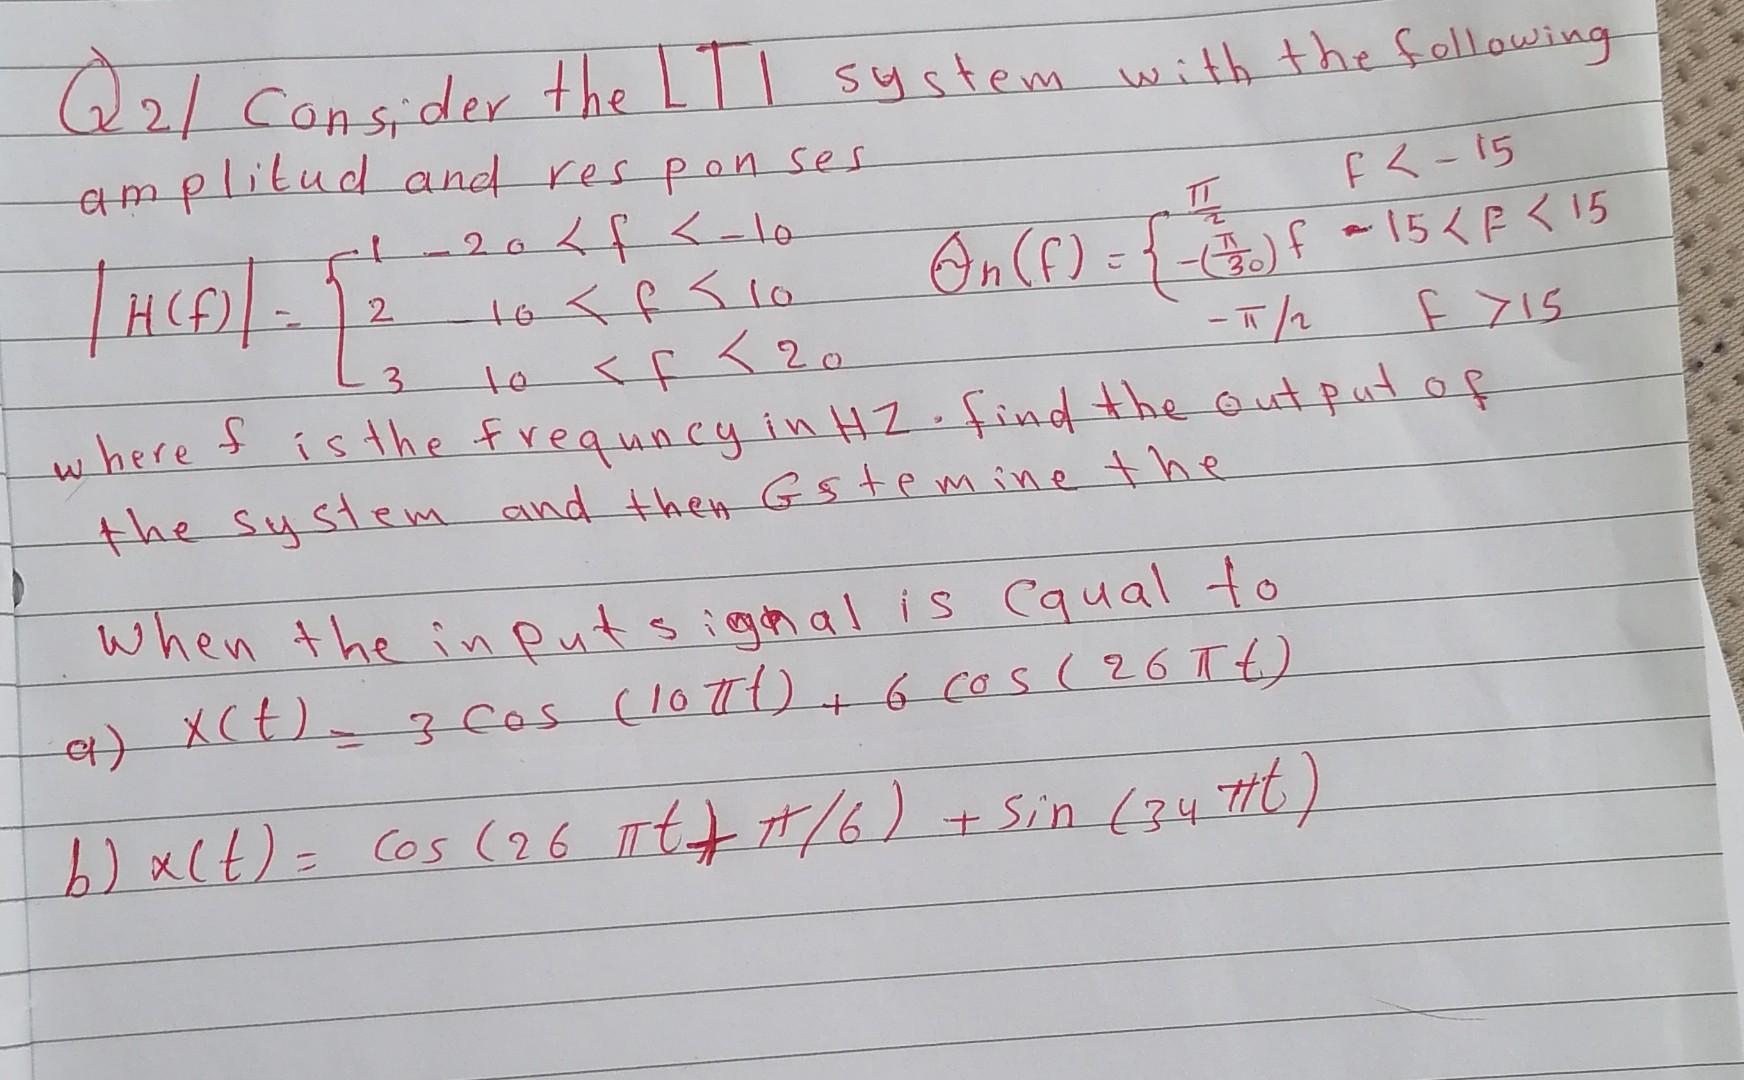 Q2/ Consider the LTI system with the following
amplitud and responses
|H(f)| = { 1 -20 < f < -10
2 -10 < f < 10
3 10 < f < 20
θn(f) = { π/2 f < -15
-(π/30) f -15 < F < 15
-π/2 f > 15
where f is the frequncy in HZ. find the output of
the system and then Gstemine the
When the input signal is equal to
a) x(t) = 3 cos (10πt) + 6 cos (26πt)
b) x(t) = cos (26 πt + π/6) + sin (34πt)